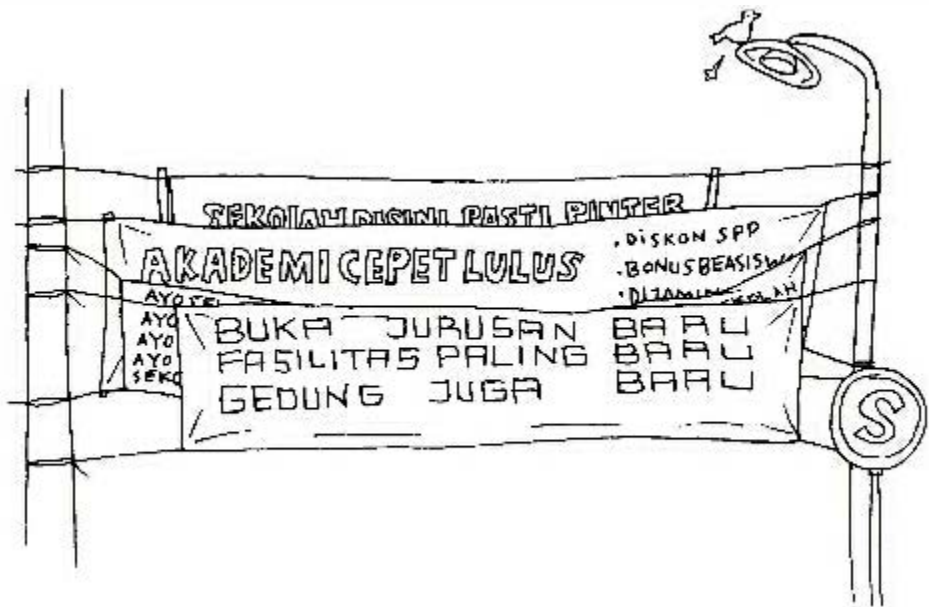 SEKOLAH DISINI PASTI PINTER
AKADEMI CEPET LULUS
. DISKON SPP
. BONUS BEASISW
. DIJAMIN
AYO
AYO
AYO
AYO
AYO
BUKA JURUSAN BAAU
FASILITAS PALING BAAU
GEDUNG JUGA BAAU
S